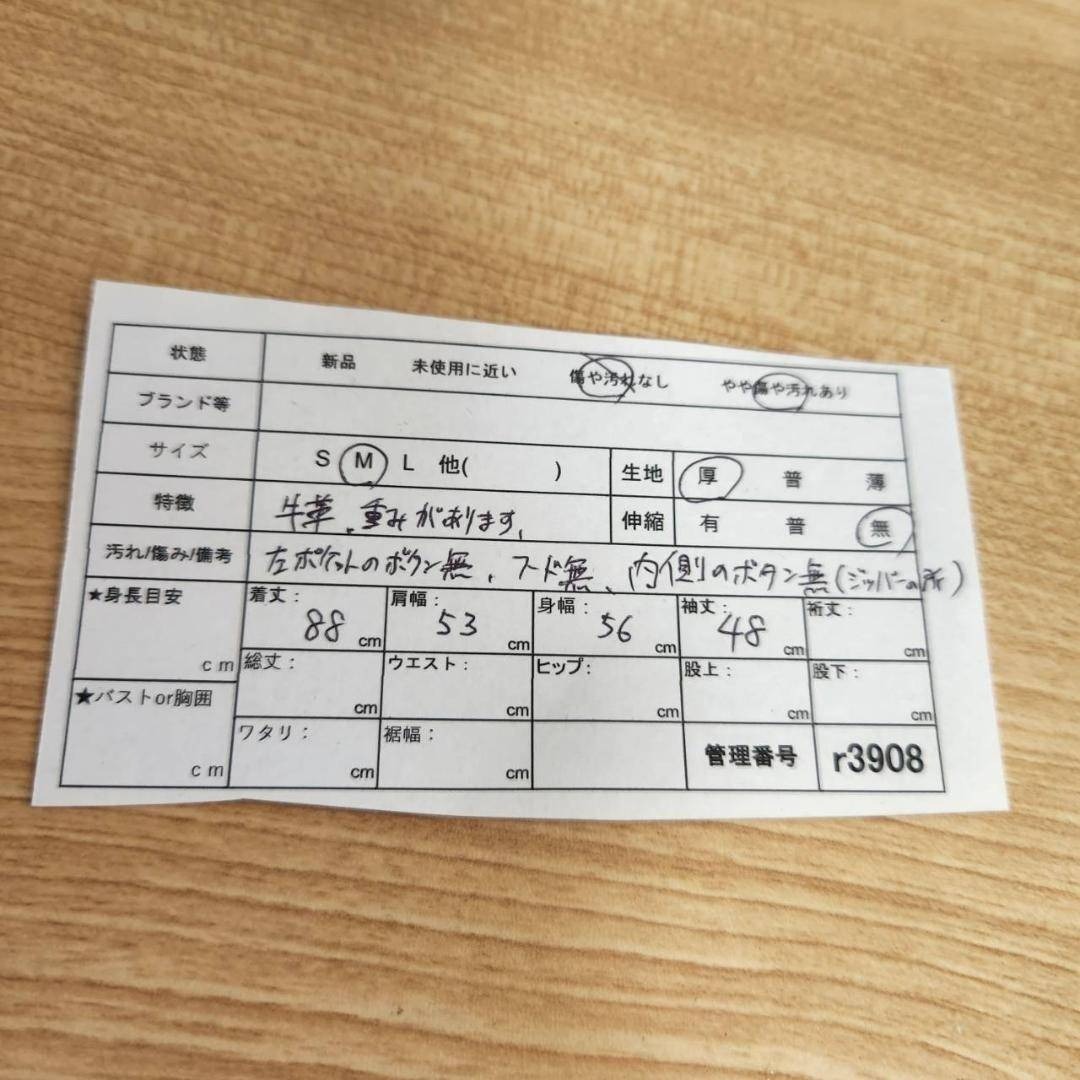 状態 新品 未使用に近い 傷や汚れなし やや傷や汚れあり
ブランド等
サイズ S M L 他( ) 生地 厚 普 薄
特徴 牛革、重みがあります、 伸縮 有 普 無
汚れ/傷み/備考 左ポケットのボタン無、フード無、内側のボタン無(ジッパーの所)
★身長目安 cm 着丈: 88 cm 肩幅: 53 cm 身幅: 56 cm 袖丈: 48 cm 裄丈: cm
総丈: cm ウエスト: cm ヒップ: cm 股上: cm 股下: cm
★バストor胸囲 cm ワタリ: cm 裾幅: cm 管理番号 r3908